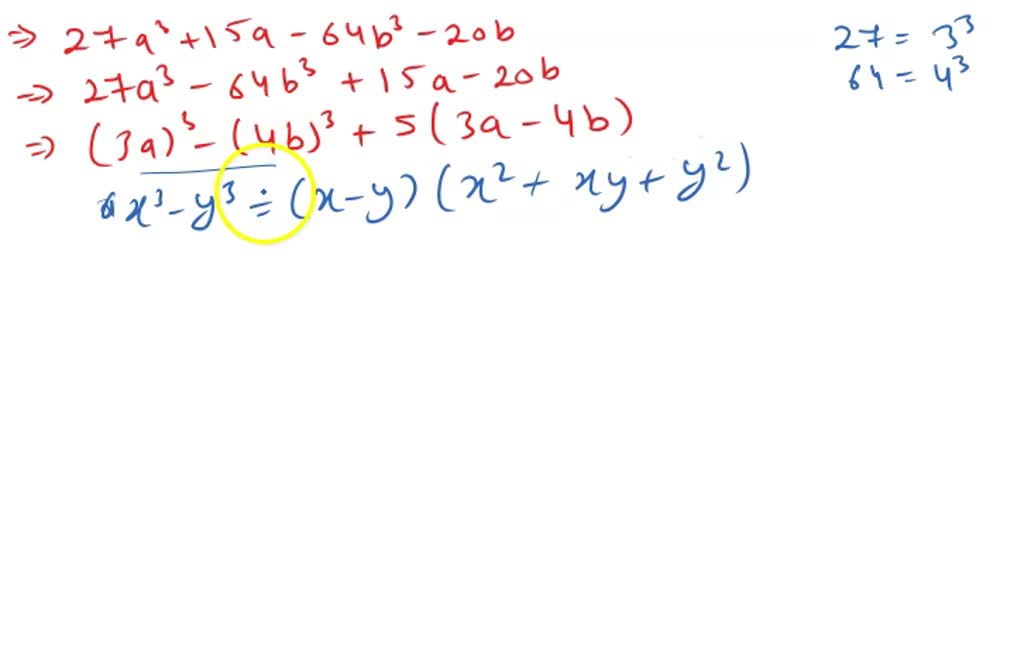 ⇒ 27a³ + 15a - 64b³ - 20b
⇒ 27a³ - 64b³ + 15a - 20b
⇒ (3a)³ - (4b)³ + 5(3a - 4b)
x³ - y³ = (x - y)(x² + xy + y²)
27 = 3³
64 = 4³